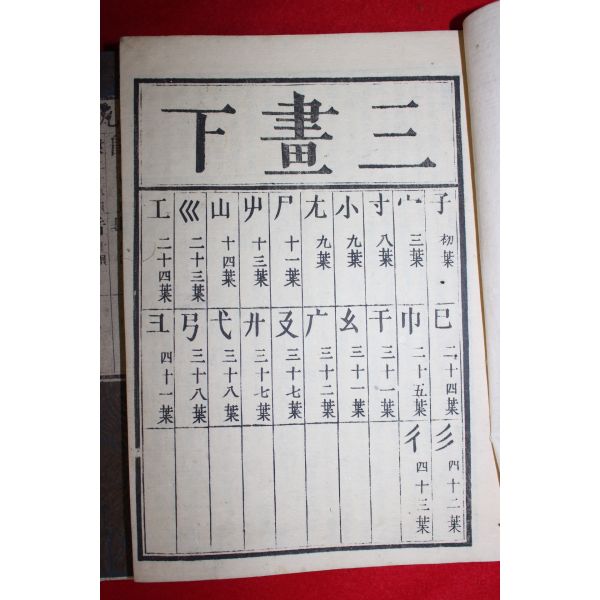 三畫下
子 初葉
宀 三葉
寸 八葉
小 九葉
尢 九葉
尸 十一葉
屮 十三葉
山 十四葉
巛 二十三葉
工 二十四葉
巳 二十四葉
巾 二十五葉
干 三十一葉
幺 三十一葉
广 三十二葉
廴 三十七葉
廾 三十七葉
弋 三十八葉
弓 三十八葉
彐 四十一葉
彡 四十二葉
彳 四十三葉